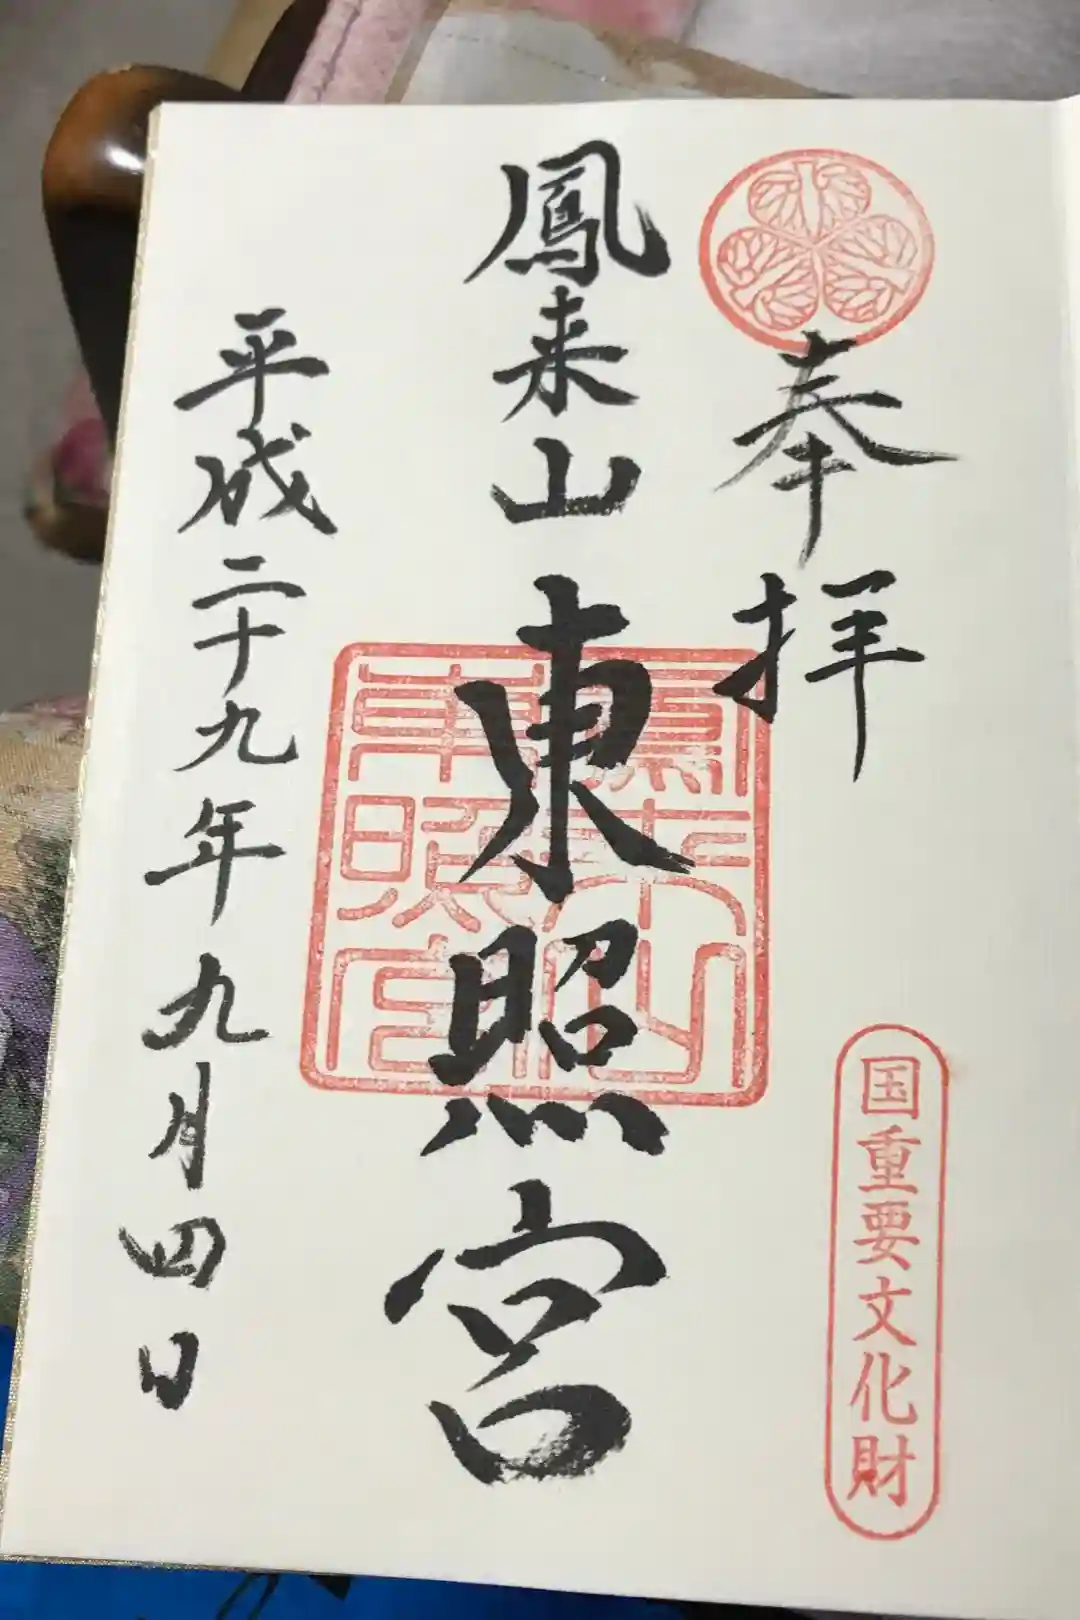 奉拝
国重要文化財
鳳来山東照宮
鳳来山東照宮
平成二十九年九月四日